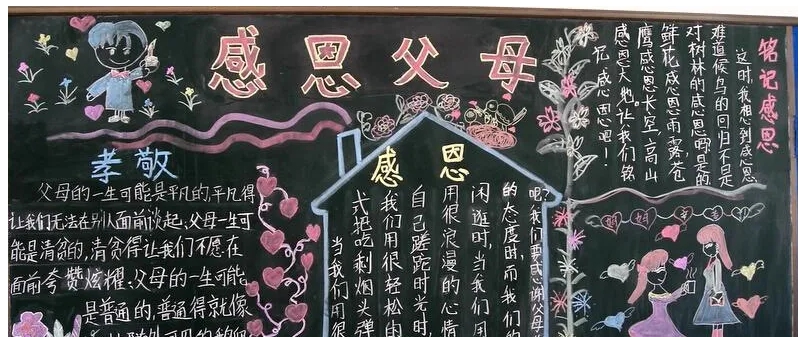 感恩父母
孝敬
父母的一生可能是平凡的,平凡得
让我们无法在别人面前谈起;父母一生可
能是清贫的,清贫得让我们不愿在
面前夸赞炫耀;父母的一生可能
是普通的,普通得就像
感恩
当我们用很
式把吃剩烟头弹
我们用很轻松的
自己蹉跎时光时,
用很浪漫的心情
闲逛时,当我们用
的态度时,而我们的
吧?我们要感谢父母
铭记感恩
这时,我想到感恩
难道候鸟的回归不是
对树林的感恩吗?是的
鲜花感恩雨露,苍
鹰感恩长空,高山
感恩大地,让我们铭
记感恩吧!